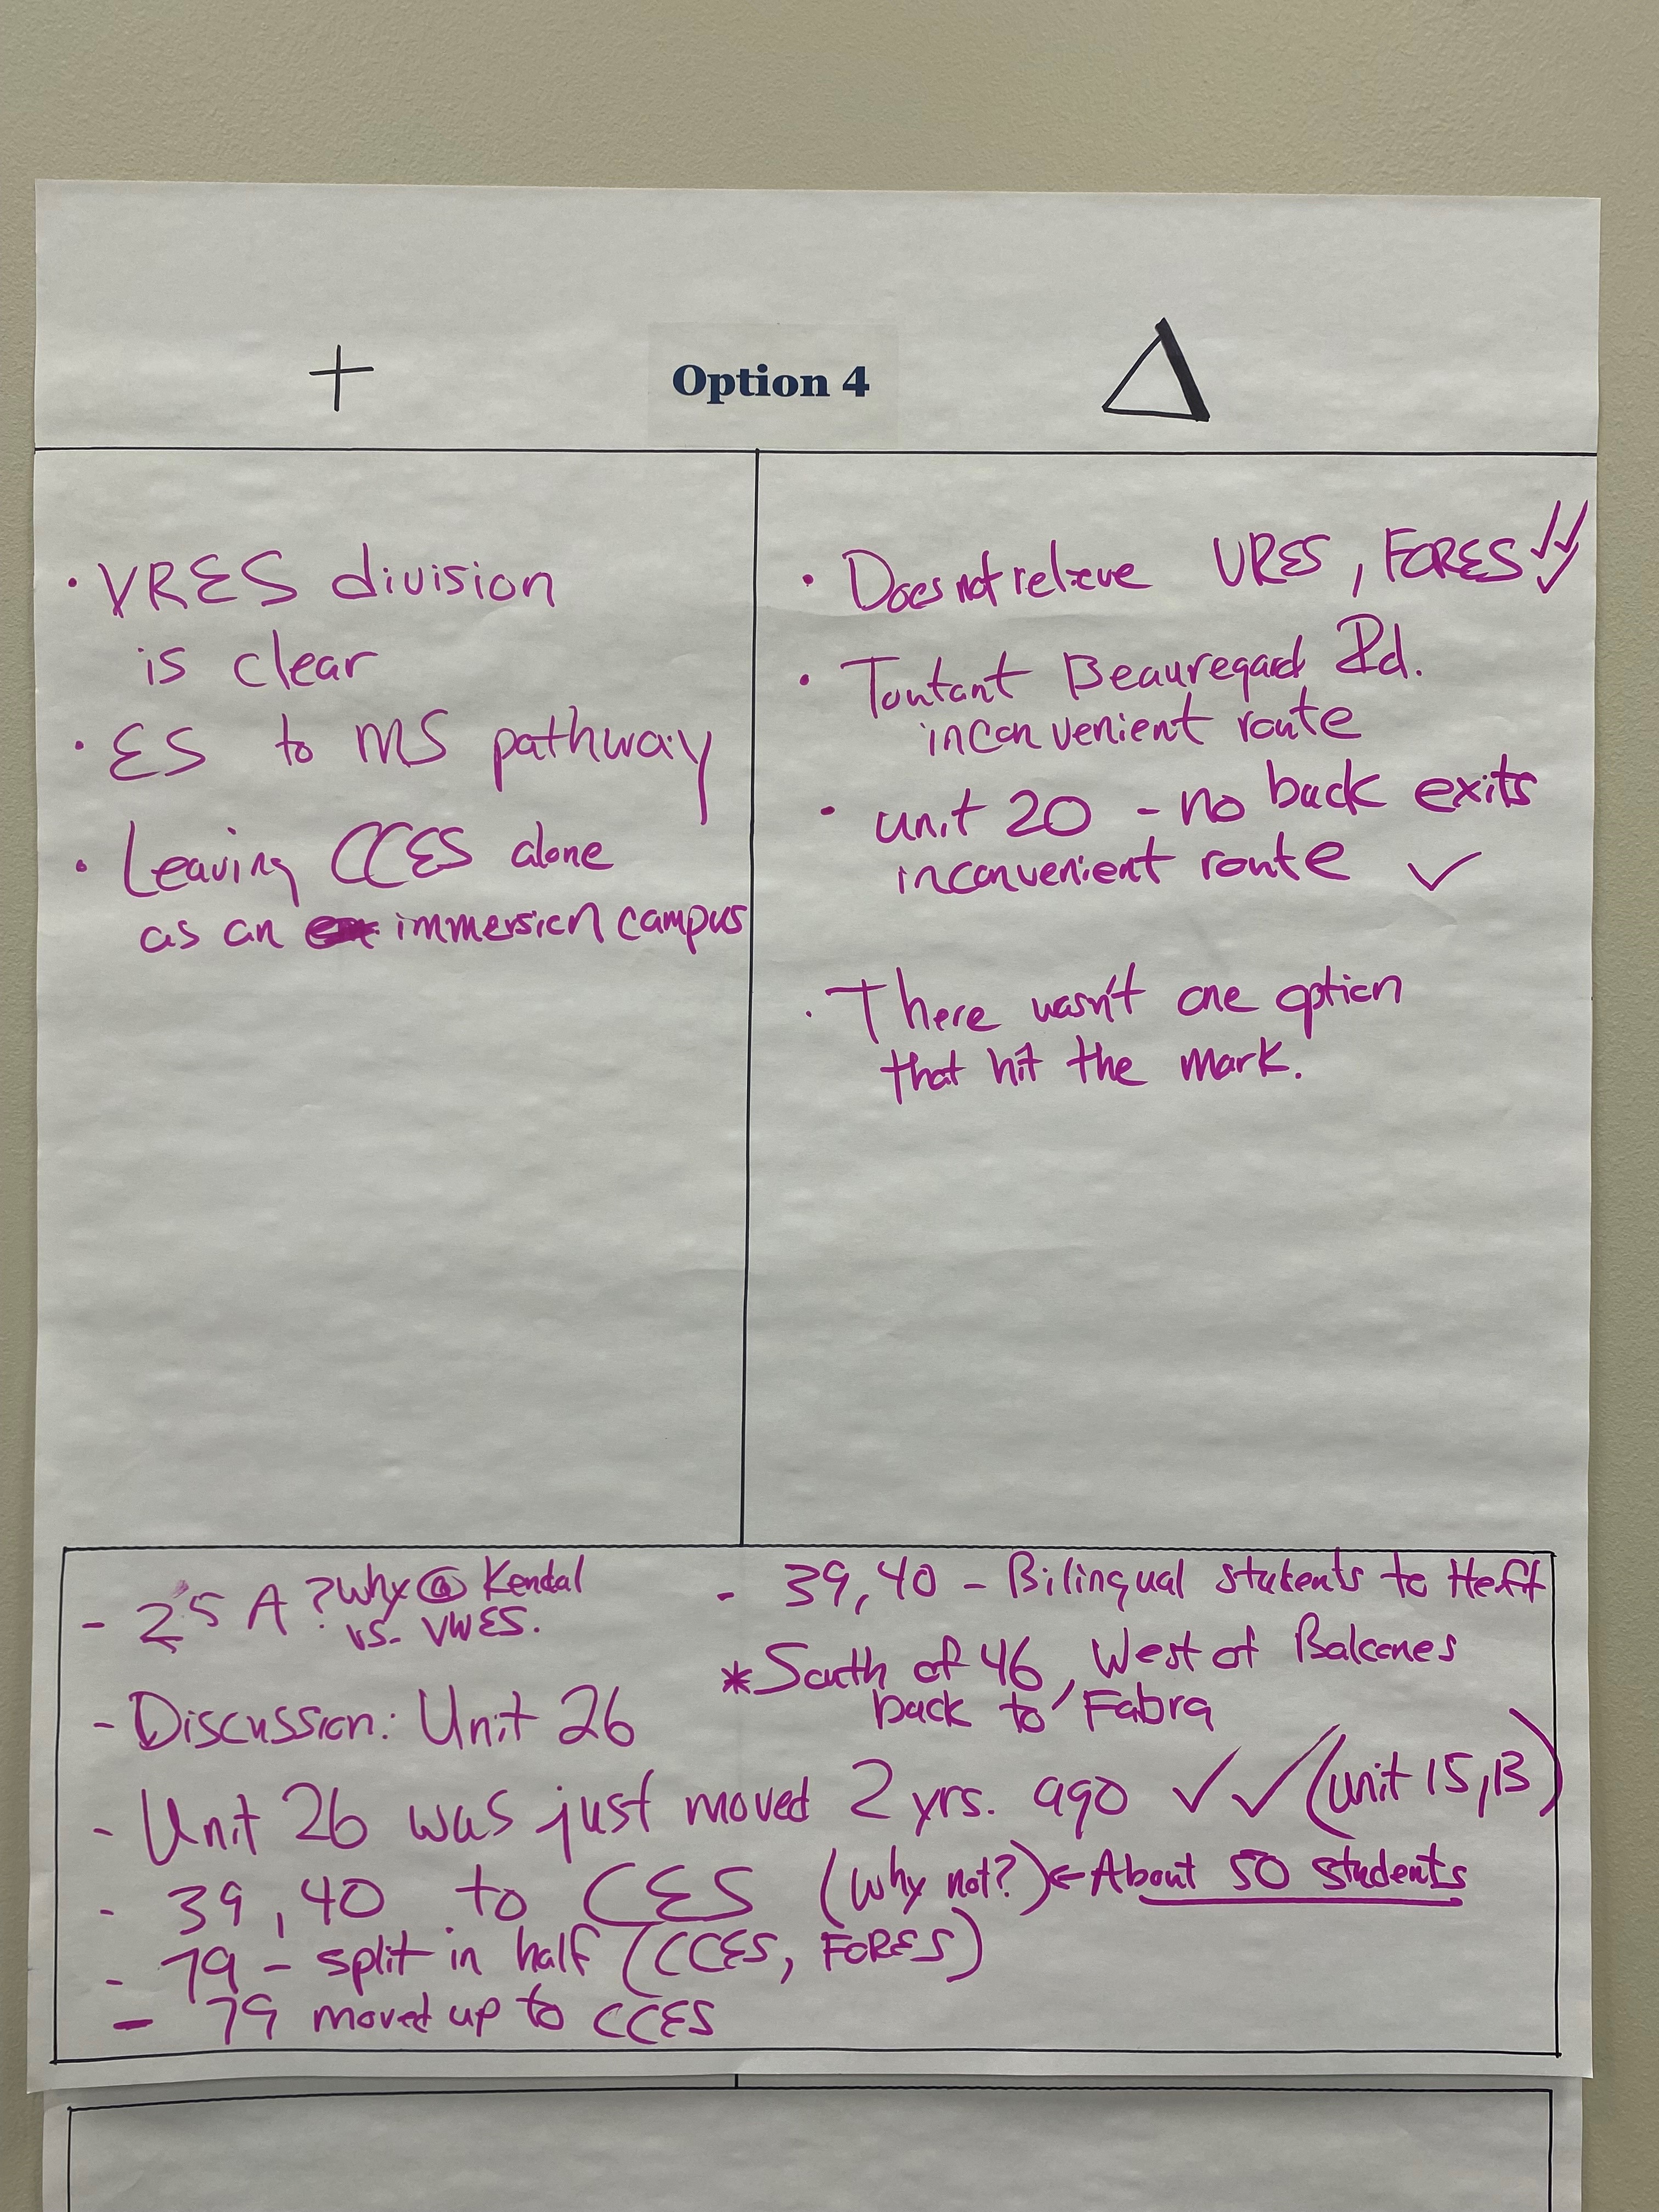 +
Option 4
Δ
· VRES division
is clear
· ES to MS pathway
· Leaving CCES alone
as an immersion campus
· Does not relieve VRES, FORES ✓✓
· Toutant Beauregard Rd.
inconvenient route
· unit 20 - no back exits
inconvenient route ✓
· There wasn't one option
that hit the mark.
- 25 A ? why @ Kendal
vs. VWES.
- Discussion: Unit 26
- 39, 40 - Bilingual students to Herff
* South of 46, West of Balcones
back to Fabra
- Unit 26 was just moved 2 yrs. ago ✓✓ (unit 15, 13)
- 39, 40 to CES (Why not?) ← About 50 students
- 79 - split in half (CCES, FORES)
- 79 moved up to CCES